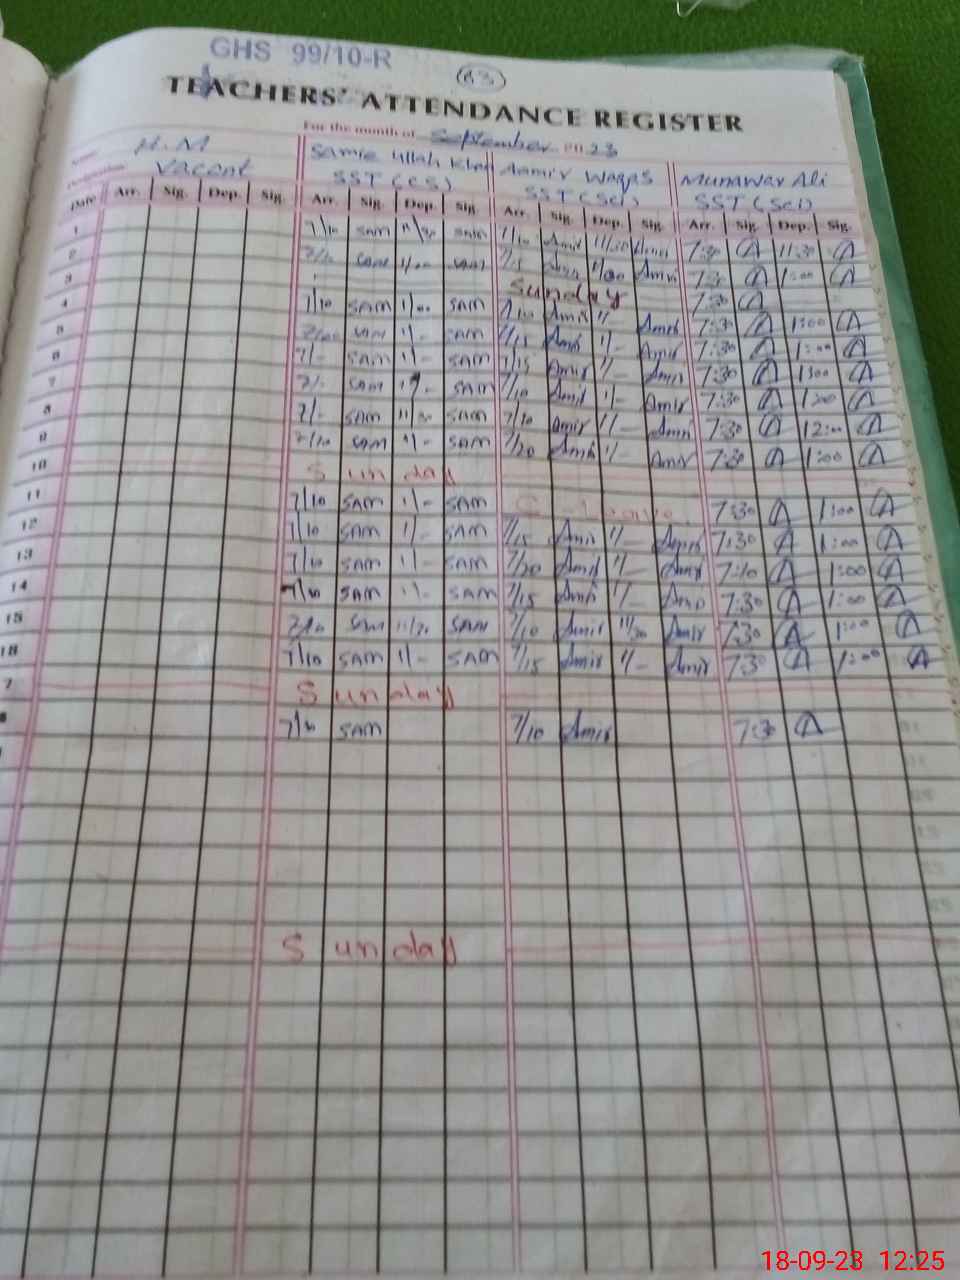 GHS 99/10-R
83
TEACHERS' ATTENDANCE REGISTER
For the month of September 2023
H.M Samie Ullah Khan Aamir Waqas Munawar Ali
Vacant SST (CS) SST (Sci) SST (Sci)
Date Arr. Sig. Dep. Sig. Arr. Sig. Dep. Sig. Arr. Sig. Dep. Sig. Arr. Sig. Dep. Sig.
1 7/10 SAM 11/30 SAM 7/10 Amir 11/30 Amir 7:30 A 11:30 A
2 SAM 1/00 SAM 7/15 Amir 1/00 Amir 7:30 A 1:00 A
3 Sunday 7:30 A
4 7/10 SAM 1/00 SAM 7/10 Amir 1/- Amir 7:30 A 1:00 A
5 SAM 1/- SAM 7/15 Amir 1/- Amir 7:30 A 1:00 A
6 7/- SAM 1/- SAM 7/15 Amir 1/- Amir 7:30 A 1:00 A
7 7/- SAM 1/- SAM 7/10 Amir 1/- Amir 7:30 A 1:00 A
8 7/- SAM 11/30 SAM 7/10 Amir 1/- Amir 7:30 A 12:00 A
9 7/10 SAM 1/- SAM 7/20 Amir 1/- Amir 7:30 A 1:00 A
10 Sunday
11 7/10 SAM 1/- SAM C-Leave 7:30 A 1:00 A
12 7/10 SAM 1/- SAM 7/15 Amir 1/- Amir 7:30 A 1:00 A
13 7/10 SAM 1/- SAM 7/20 Amir 1/- Amir 7:10 A 1:00 A
14 7/10 SAM 1/- SAM 7/15 Amir 1/- Amir 7:30 A 1:00 A
15 7/10 SAM 11/30 SAM 7/10 Amir 11/30 Amir 7:30 A 1:00 A
16 7/10 SAM 1/- SAM 7/15 Amir 1/- Amir 7:30 A 1:00 A
7 Sunday
7/10 SAM 7/10 Amir 7:30 A
Sunday
18-09-23 12:25